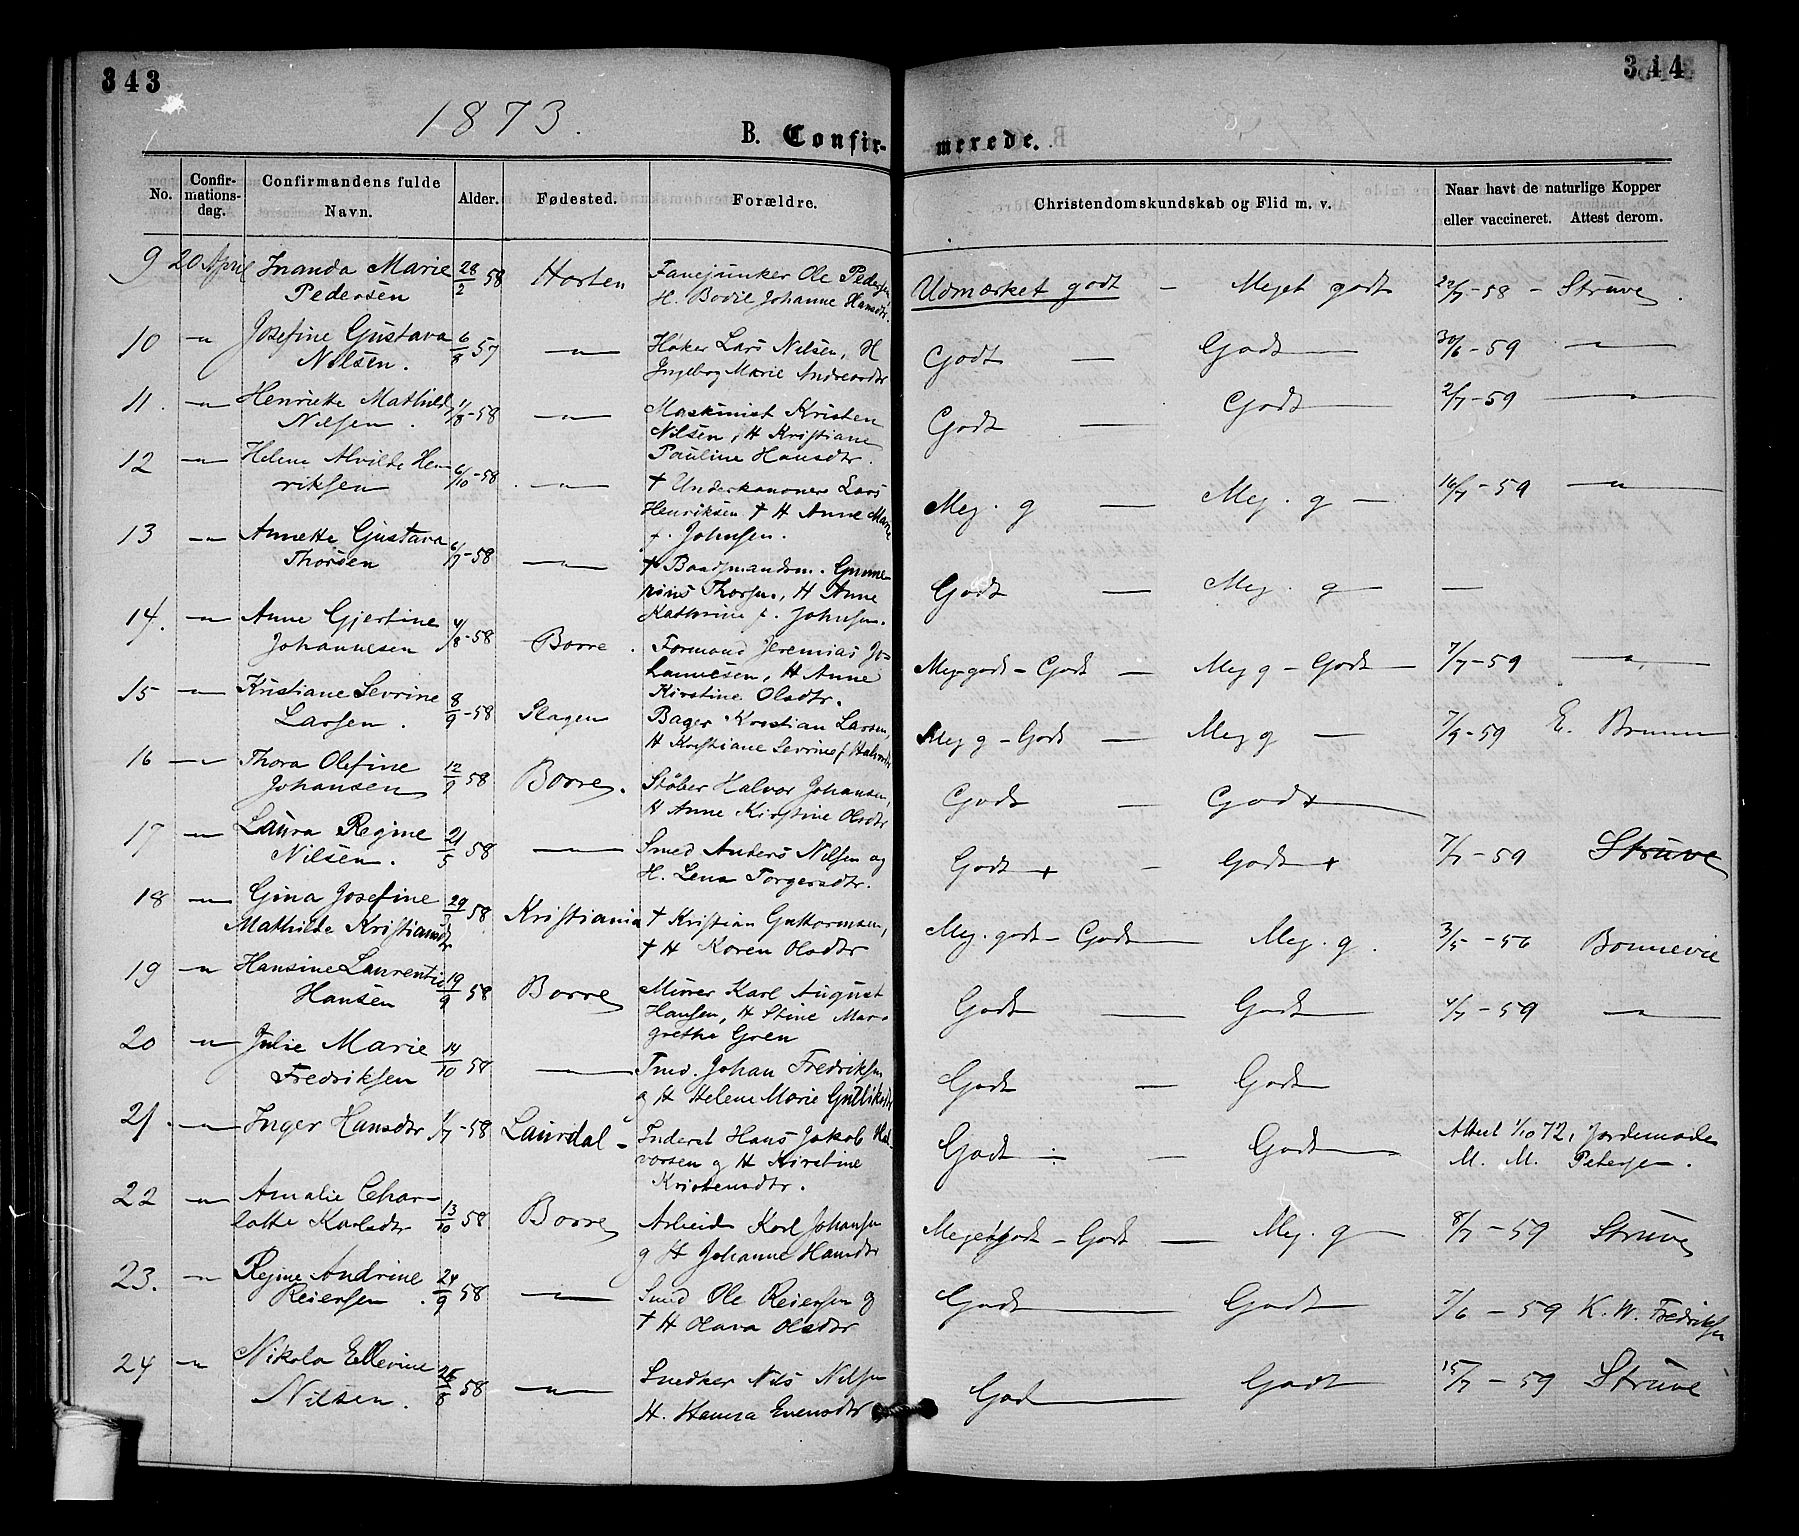 343
344
1873.
B. Confir-
merede.
No.
Confir-
mations-
dag.
Confirmandens fulde
Navn.
Alder.
Fødested.
Forældre.
Christendomskundskab og Flid m. v.
Naar havt de naturlige Kopper
eller vaccineret. Attest derom.
9 20 April Inanda Marie 28/2 58 Horten Fanejunker Ole Pedersen Udmærket godt - Meget godt 22/7-58 - Struve.
Pedersen H. Bodil Johanne Hansdtr.
10 -"- Josefine Gustava 6/8 57 -"- Høker Lars Nilsen, H Godt - Godt 30/6-59 -"-
Nilsen. Ingeborg Marie Andreasdtr
11. -"- Henriette Mathilde 11/8-58 -"- Maskinist Kristen Godt - Godt 2/7-59 -"-
Nilsen. Nilsen, H Kristiane
Pauline Hansdtr.
12 -"- Helene Alvilde Hen- 6/10-58 -"- † Underkanoner Lars Meg. g - Meg. g - 16/7-59 -"-
riksen Henriksen † H Anne Marie
f. Johnsen.
13 -"- Annette Gustava 6/9-58 -"- † Baadsmandsm. Gunne- Godt - Meg. g -
Thorsen rius Thorsen, H Anne
Kathrine f. Johnsen.
14. -"- Anne Gjertine 4/8-58 Borre. Formand Jeremias Jo- Meg. godt - Godt - Meg g - Godt 7/7-59 -"-
Johannesen hannesen, H Anne
Kirstine Olsdtr.
15 -"- Kristiane Sevrine 8/9-58 Slagen Bager Kristian Larsen, Meg g - Godt - Meg g - 7/9-59 E. Bruun
Larsen. H Kristiane Sevrine f. Halvorsdtr
16 -"- Thora Olefine 12/9 58 Borre. Støber Halvor Johansen, Godt - Godt+
Johansen H Anne Kirstine Olsdtr
17 -"- Laura Regine 21/5 58 -"- Smed Anders Nilsen og Godt+ - Godt+ 7/7-59 Struve
Nilsen. H. Lena Torgersdtr.
18 -"- Gina Josefine 29/8 58 Kristiania † Kristian Guttormsen, Meg. godt - Godt Meg. g. 3/5-56 Bonnevie
Mathilde Kristiansdtr † H Karen Olsdtr
19 -"- Hansine Laurentie 19/9 58 Borre Murer Karl August Godt Godt 4/7-59 -"-
Hansen Hansen, H Stine Mar-
grethe Gren
20 -"- Julie Marie 14/10 58 -"- Tmd. Johan Fredriksen Godt - Godt
Fredriksen og H Helene Marie Gulliksdtr
21. -"- Inger Hansdtr 1/7-58 Laurdal - Inderst Hans Jakob Hal- Godt - Godt Attest 1/10 72, Jordemoder
vorsen og H Kirstine M. M. Petersen.
Kristensdtr.
22 -"- Amalie Char- 13/10 58 Borre Arbeids Karl Johansen Meget godt - Godt - Meg. g 8/7-59 Struve
lotte Karlsdtr og H Johanne Hansdtr
23. -"- Regine Andrine 24/9 58 -"- Smed Ole Reiersen og Godt Godt 7/6-59 K. W. Fredriksen
Reiersen. † H Olava Olsdtr
24 -"- Nikola Ellevine 25/8 58 -"- Snedker Nils Nilsen Godt Godt 15/7-59 Struve
Nilsen. H. Hanna Evensdtr